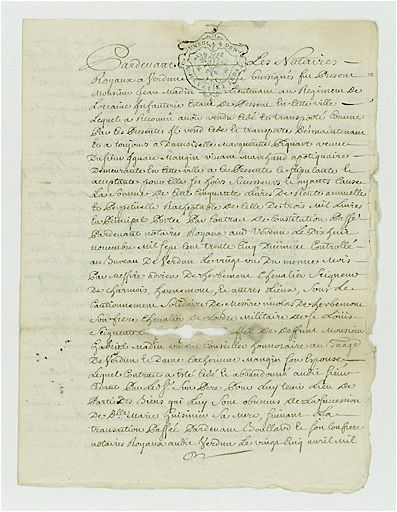 Pardevant Les Notaires
Royaux a Verdun soussignés fut Present
Monsieur Jean Madin Lieutenant au Regiment de
Lorraine Infanterie Estant de Present en cette ville
Lequel a Reconnu avoir vendu cedé et transporté comme
Par ces Presentes Il vend cede et transporte Dés maintenant
et a toujours a Damoiselle Marguerite veuve
Du sieur Ignace Mangin vivant Marchand apotiquaire
Demeurante en cette ville a ce Presente et stipulante et
acceptante pour elle ses hoirs successeurs et ayants cause
La somme de cent cinquante Livres de rente annuelle
et Perpetuelle Rachetable de Celle de trois mil Livres
en Principal Portée Par Contrat de Constitution Passé
Pardevant notaires Royaux audit Verdun Le Dix huit
novembre mil sept cent trente cinq Controllé
au Bureau De Verdun Le vingt six Du mesme Mois
Par Messire de Herbemont Chevalier Seigneur
de Charmois, et autres Lieux, Sous Le
Cautionnement Solidaire De Messire nicolas de herbemont
Son frere Chevalier de Lordre Militaire de St Louis
de Deffunt Monsieur
Madin vivant Conseiller honoraire au Bailliage
de Verdun et Dame Catherinne Mangin Son Epouse
Lequel Contrat a esté cedé et abandonné audit Sieur
Cedant Par Pour Luy tenir Lieu De
Partie Des Biens qui Luy sont obvenus De La Succession
De Marie Sa Mere, suivant La
transaction Passée Pardevant et Son Confrere
notaires Royaux audit Verdun Le vingt cinq avril mil